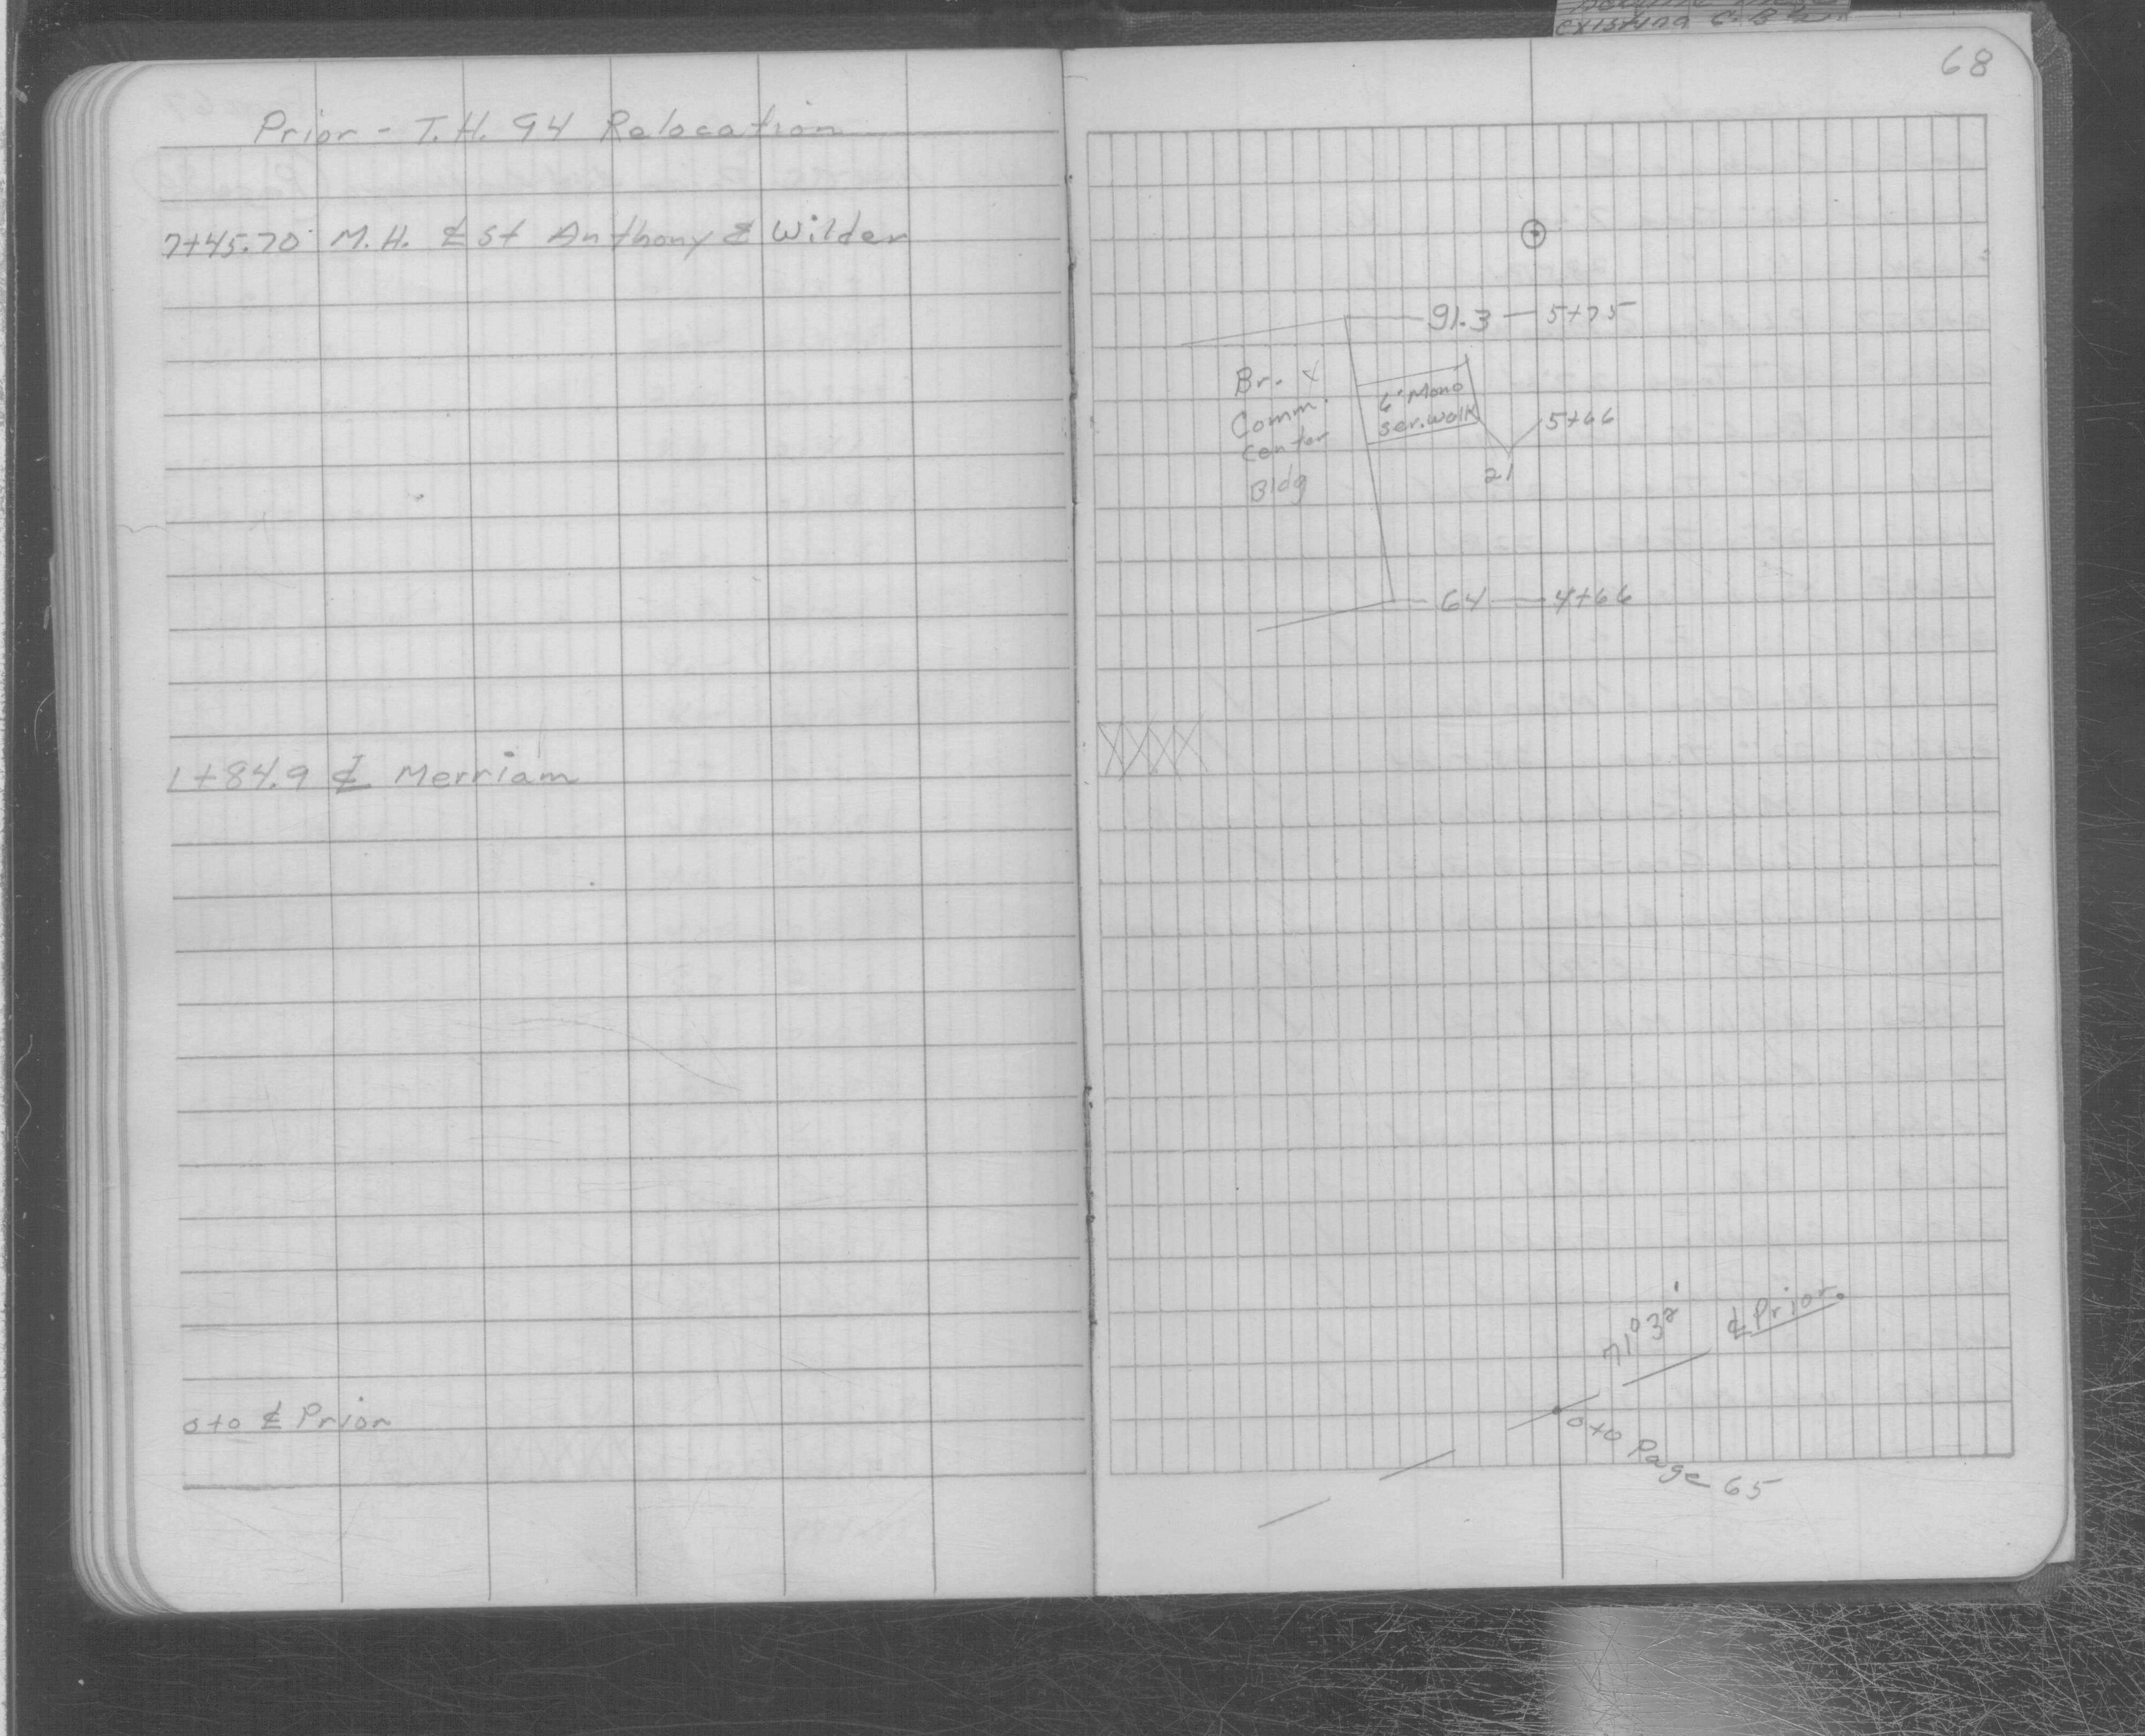 existing C.B's.
68
Prior - T.H. 94 Relocation
7+45.70 M.H. ℄ St Anthony ℄ Wilder
1+84.9 ℄ Merriam
0+0 ℄ Prior
91.3 5+75
Br. &
Comm.
Center
Bldg
6' Mono
Ser. Walk
5+66
21
64 4+66
71°38'
℄ Prior.
0+0 Page 65